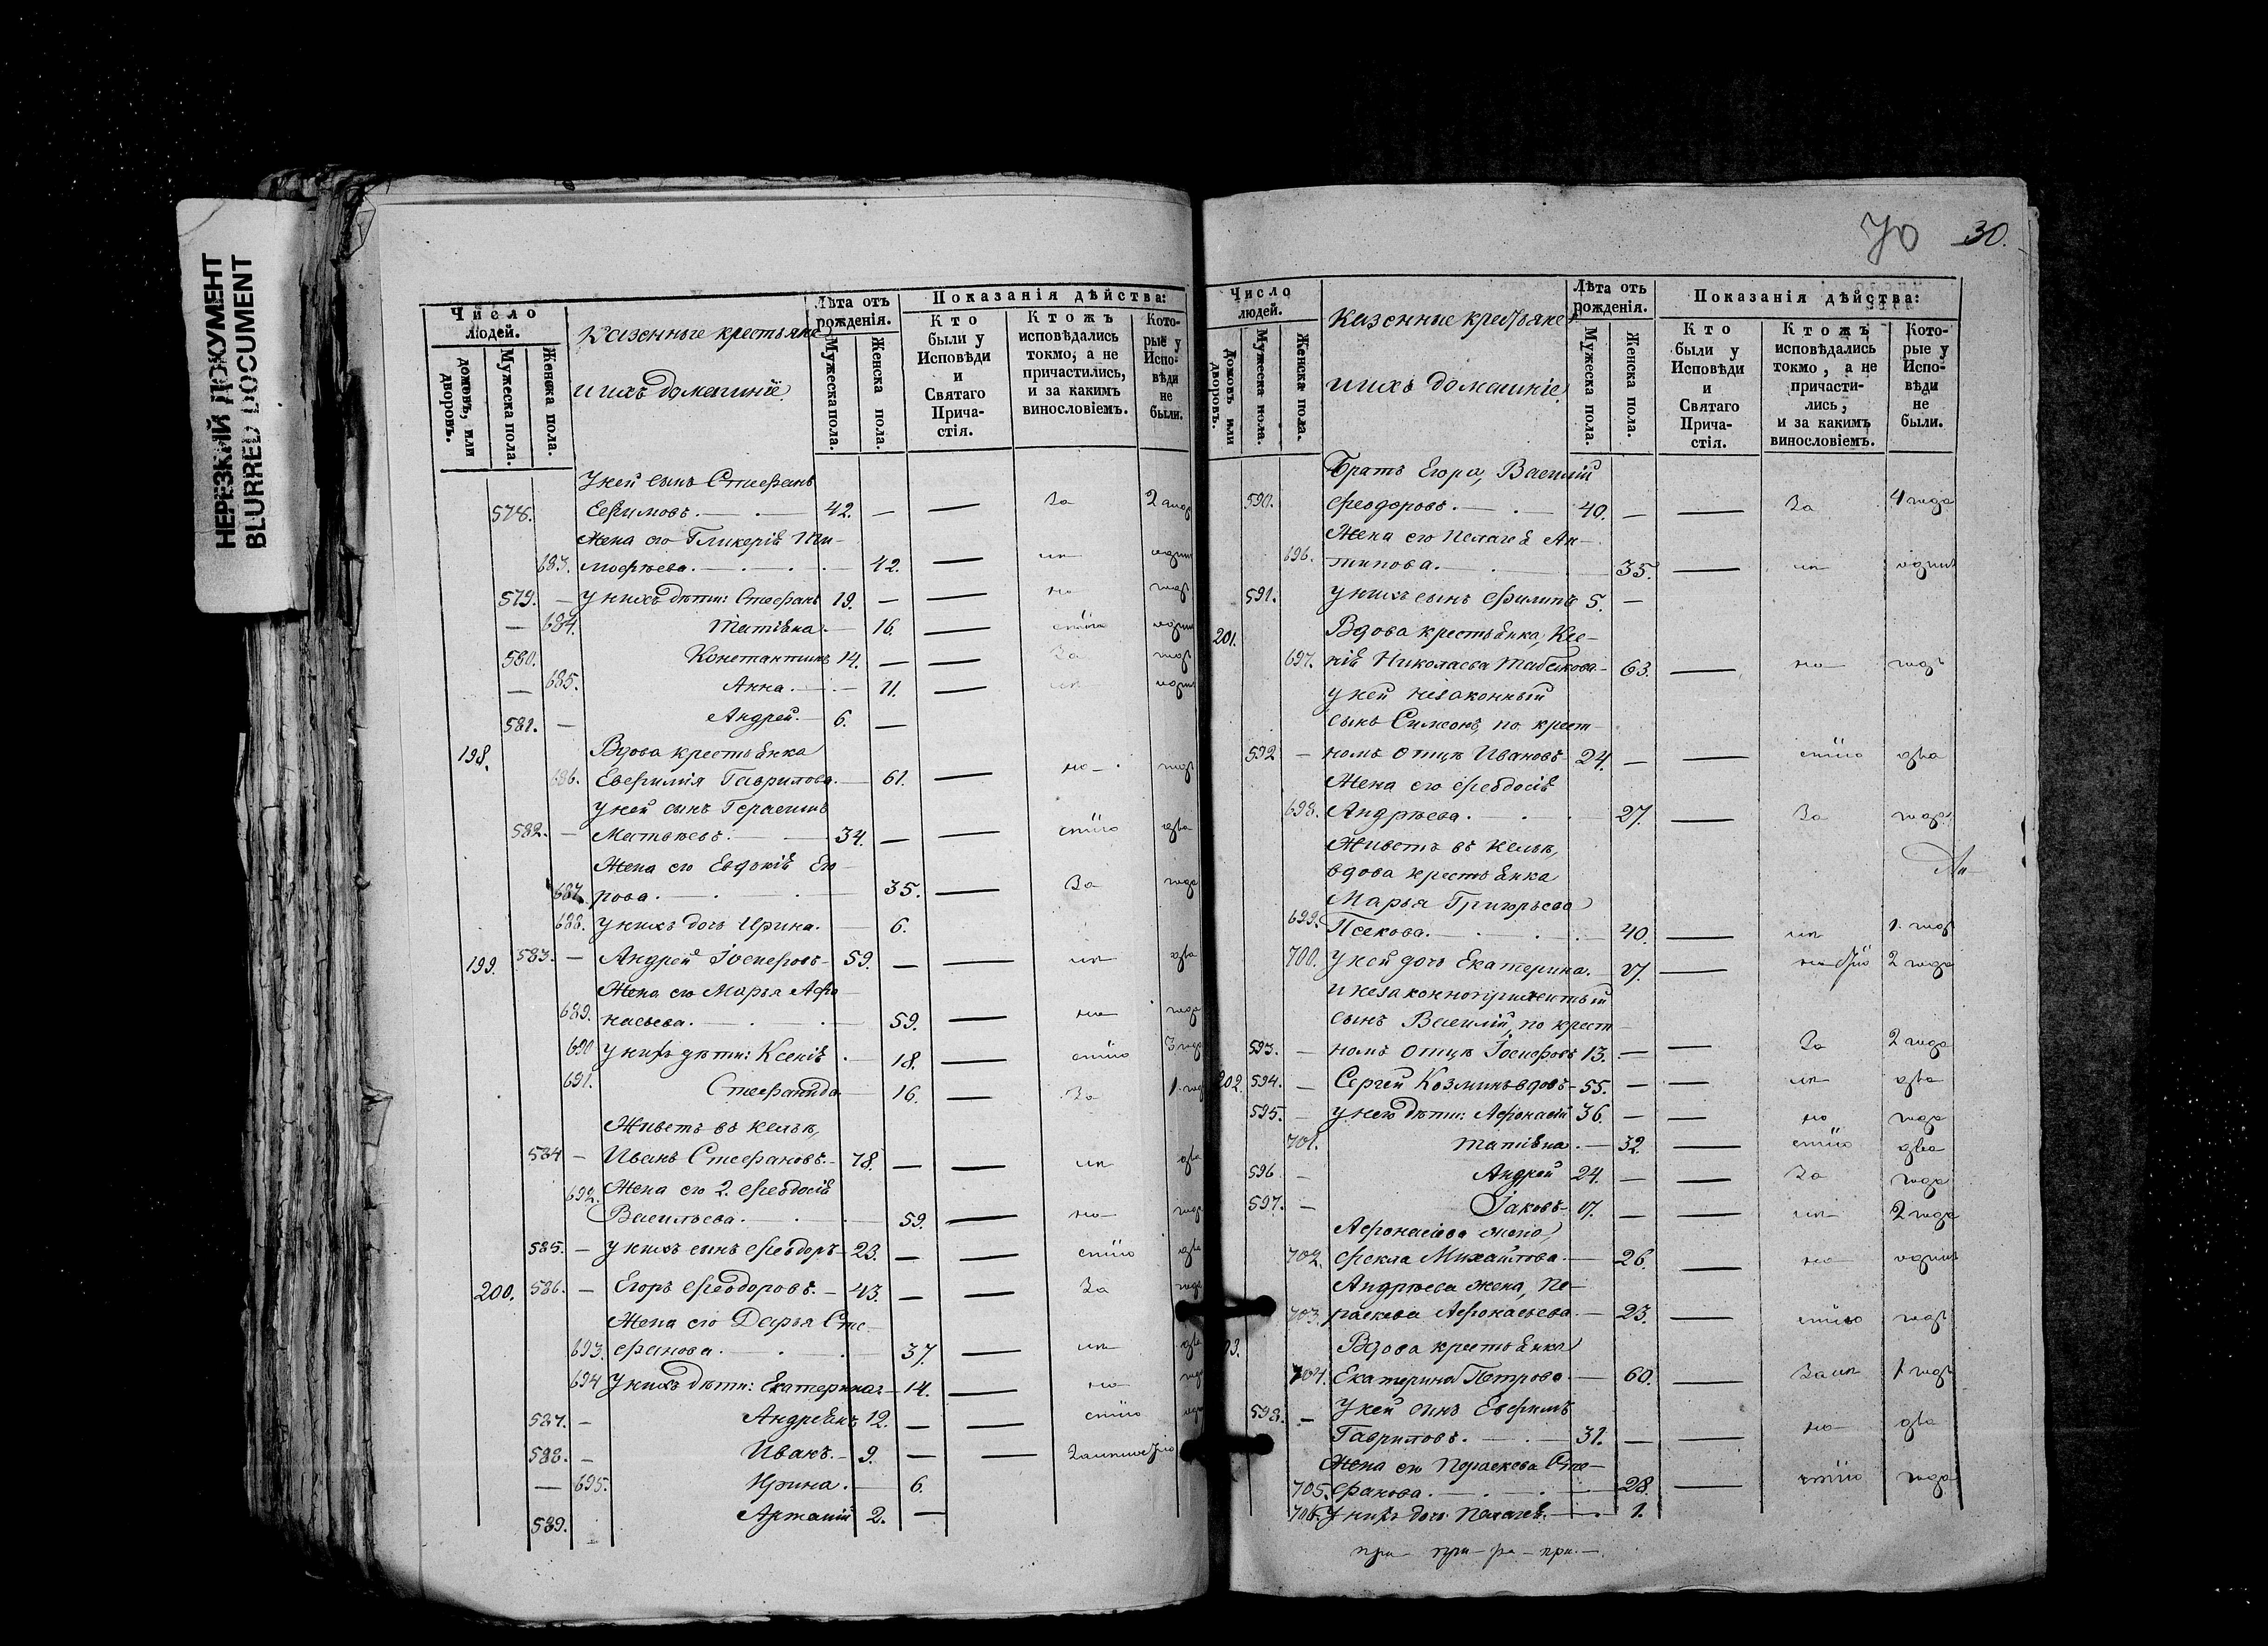 НЕРЕЗКИЙ ДОКУМЕНТ
BLURRED DOCUMENT
Число людей.
домовъ, или дворовъ.
Мужеска пола.
Женска пола.
Казенные крестьяне
и ихъ домашніе
Лѣта отъ рожденія.
Мужеска пола.
Женска пола.
Показанія дѣйства:
Кто были у Исповѣди и Святаго Причастія.
Ктожъ исповѣдались токмо, а не причастились, и за какимъ винословіемъ.
Которые у Исповѣди не были.
У ней сынъ Стефанъ
578. Ефимовъ. 42. — — За 2 год
Жена его Гликерія Ти-
683. мофѣева. 42. — ли один
579. — У нихъ дѣти: Стефанъ 19. — — но год
— 684. Татіана. 16. — стію один
580. Константинъ 14. — — За год
— 685. Анна. 11. — ли один
581. — Андрей. 6. —
198. Вдова крестьянка
686. Евфимія Гаврилова. 61. — но год
У ней сынъ Герасимъ
582. — Матвѣевъ. 34. — — стію два
Жена его Евдокія Его-
687. рова. 35. — За года
688. У нихъ дочь Ирина. 6.
199. 583. — Андрей Іосифовъ 59. — — ли два
Жена его Марья Афо-
689. насьева. 59. — но года
690 У нихъ дѣти: Ксенія 18. — стію 3 года
691. Стефанида 16. — За 1. год
Живетъ въ кельѣ,
584 — Иванъ Стефановъ. 78. — — ли два
692. Жена его 2. Феодосія
Васильева. 59. — но года
585. — У нихъ сынъ Феодоръ 23. — — стію два
200. 586. — Егоръ Феодоровъ. 43. — — За года
Жена его Дарья Сте-
693. фанова. 37. — ли два
694 У нихъ дѣти: Екатерина 14. — но год
587. — Андреянъ 12. — — стію
588. — Иванъ. 9. — —
— 695. Ирина. 6.
589. Артамій 2. —
70 30.
Число людей.
домовъ или дворовъ.
Мужеска пола.
Женска пола.
Казенные крестьяне
и ихъ домашніе
Лѣта отъ рожденія.
Мужеска пола.
Женска пола.
Показанія дѣйства:
Кто были у Исповѣди и Святаго Причастія.
Ктожъ исповѣдались токмо, а не причастились, и за какимъ винословіемъ.
Которые у Исповѣди не были.
Братъ Егора, Василій
590. Феодоровъ. 40. — — За 4 года
Жена его Пелагея Ан-
696. типова. 35. — ли одинъ
591. У нихъ сынъ Филипъ 5. —
201. Вдова крестьянка, Ксе-
697. нія Николаева 63. — но годъ
У ней незаконный
сынъ Симеонъ, по крест-
592 — номъ отцѣ Ивановъ 24. — — стію два
Жена его Феодосія
698. Андрѣева. 27. — За года
Живетъ въ кельѣ,
вдова крестьянка
Марья Григорьева
699. Псекова. 40. — ли 1. год
700. У ней дочь Екатерина. 17. — 2 года
и незаконноприжитый
сынъ Василій, по крест-
593. — номъ отцѣ Іосифовъ 13. — — За 2 года
202 594. — Сергей Козминъ вдовъ 55. — — ли два
595. — У него дѣти: Афонасій 36. — — но года
701. Татіана 32. — стію два
596 — Андрей 24. — — За года
597. — Іаковъ 17. — — ли 2 года
Афонасіева жена,
702. Фекла Михайлова. 26. — но одинъ
Андрѣева жена, Па-
703. раскева Афонасьева. 23. — стію годъ
Вдова крестьянка
704. Екатерина Петрова. 60. — За ли 1 годъ
У ней сынъ Евфимъ
598. — Гавриловъ. 31. — — но два
Жена его Параскева Сте-
705. фанова. 28. — стію года
706. У нихъ дочь Пелагея. 1.